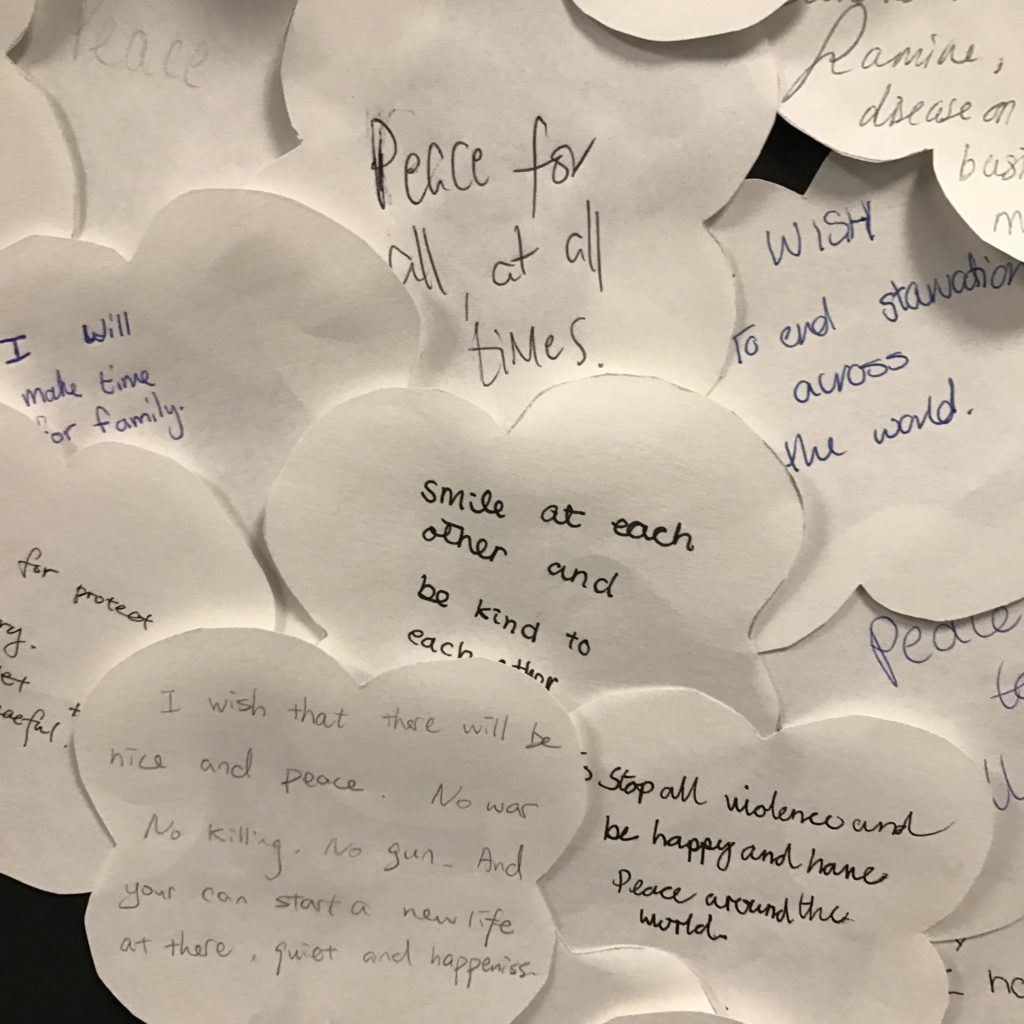 Peace
Peace for
all, at all
times.
Famine,
disease on
WISH
To end starvation
across
the world.
I will
make time
for family.
smile at each
other and
be kind to
each other
for protect
Peace
I wish that there will be
nice and peace. No war
No killing. No gun. And
your can start a new life
at there, quiet and happeniss.
Stop all violence and
be happy and have
Peace around the
world.